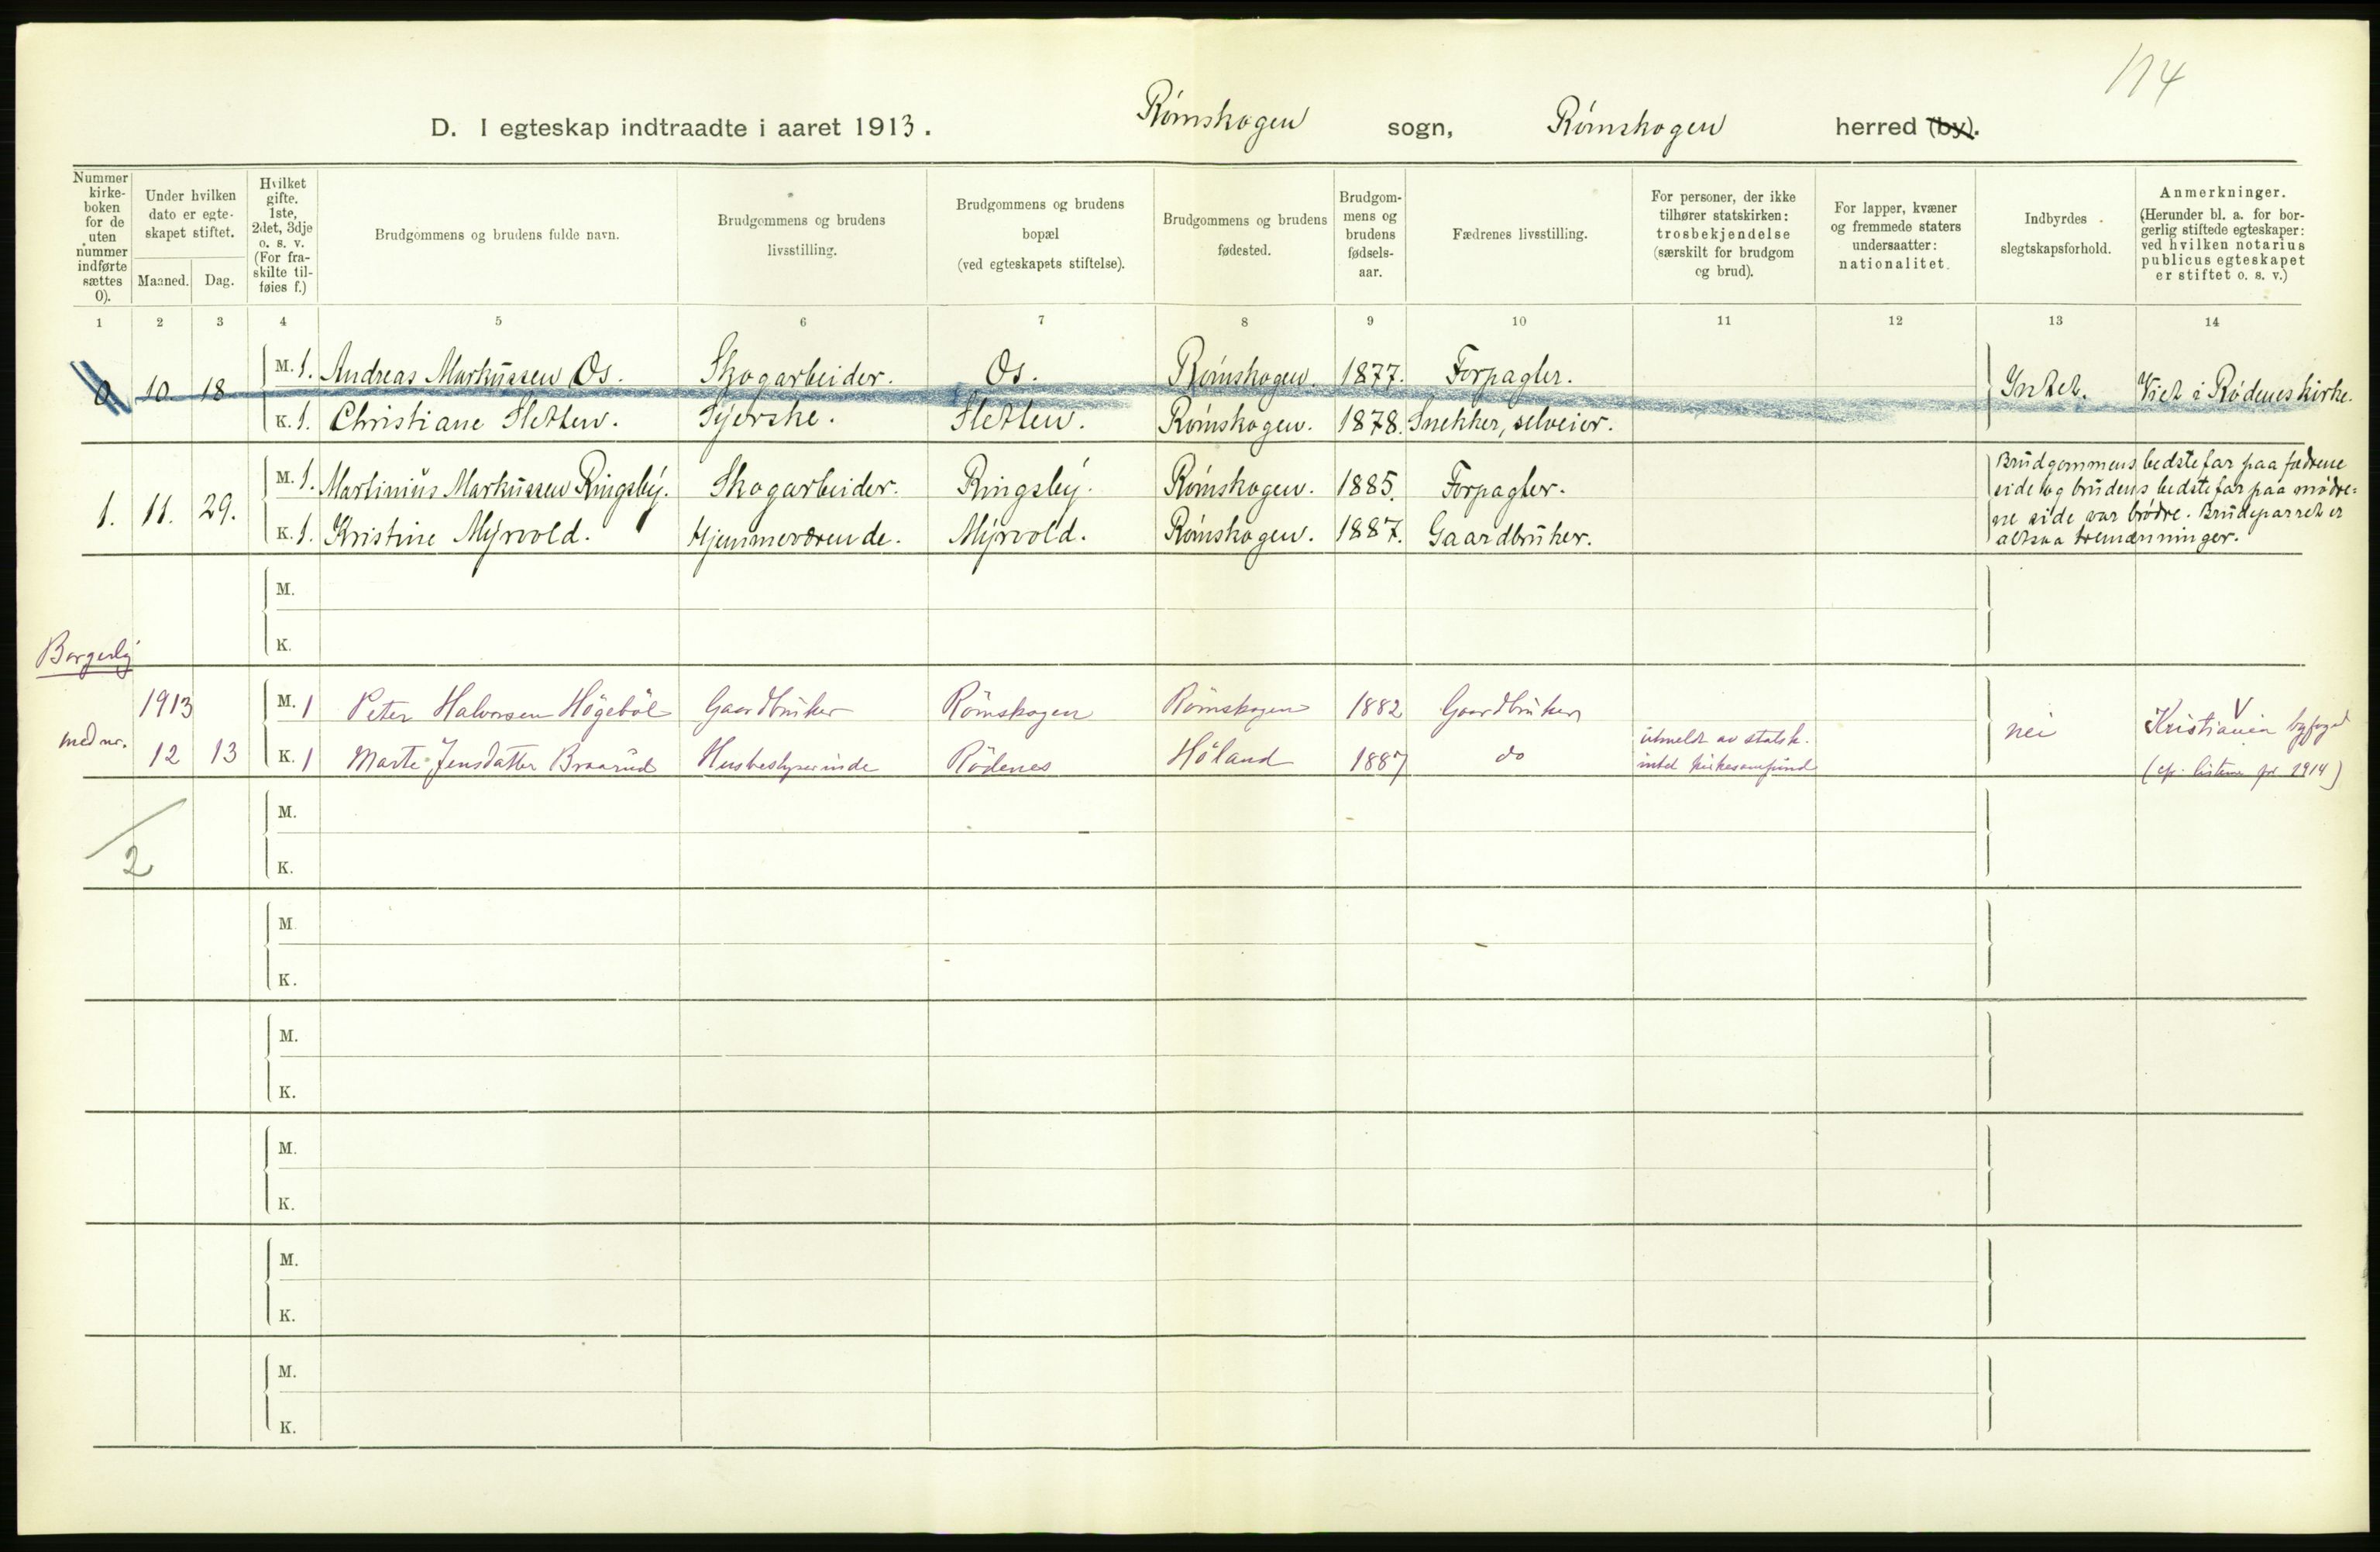 114
D. I egteskap indtraadte i aaret 1913. Rømskogen sogn, Rømskogen herred (by).
Nummer kirkeboken for de uten nummer indførte sættes 0).
Under hvilken dato er egteskapet stiftet.
Maaned. Dag.
Hvilket gifte. 1ste, 2det, 3dje o. s. v. (For fraskilte tilføies f.)
Brudgommens og brudens fulde navn.
Brudgommens og brudens livsstilling.
Brudgommens og brudens bopæl (ved egteskapets stiftelse).
Brudgommens og brudens fødested.
Brudgommens og brudens fødselsaar.
Fædrenes livsstilling.
For personer, der ikke tilhører statskirken: trosbekjendelse (særskilt for brudgom og brud).
For lapper, kvæner og fremmede staters undersaatter: nationalitet.
Indbyrdes slegtskapsforhold.
Anmerkninger. (Herunder bl. a. for borgerlig stiftede egteskaper: ved hvilken notarius publicus egteskapet er stiftet o. s. v.)
1 2 3 4 5 6 7 8 9 10 11 12 13 14
0 10. 18 M. 1. Andreas Markussen Os. Skogarbeider. Os. Rømskogen. 1877. Forpagter. Intet. Viet i Rødenes kirke.
K. 1. Christiane Sletten. Syerske. Sletten. Rømskogen. 1878. Snekker, selveier.
1. 11. 29. M. 1. Martinius Markussen Ringsby. Skogarbeider. Ringsby. Rømskogen. 1885. Forpagter.
K. 1. Kristine Myrvold. Hjemmeværende. Myrvold. Rømskogen. 1887. Gaardbruker.
Brudgommens bedstefar paa fædrene
side og brudens bedstefar paa mødre-
ne side var brødre. Brudeparret er
altsaa tremænninger.
M.
K.
Borgerlig
1913 M. 1 Peter Halvorsen Högeböl Gaardbruker Römskogen Römskogen 1882 Gaardbruker nei V Kristiania byfogd
med nr. 12 13 K. 1 Marte Jensdatter Braarud Husbestyrerinde Rödenes Höland 1887 do utmeldt av statsk.
intet kirkesamfund (cfr. listene for 1914)
M.
2
K.
M.
K.
M.
K.
M.
K.
M.
K.
M.
K.